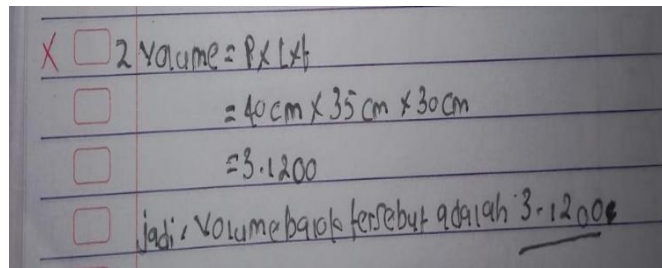 X 2 Volume = P x L x t
= 40 cm x 35 cm x 30 cm
= 3.1200
jadi, Volume balok tersebut adalah 3.1200